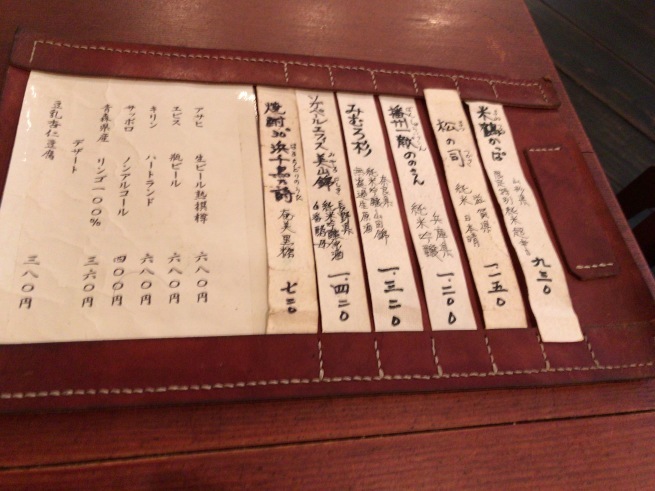 米鶴かっぱ
山形県
九三〇
松の司
滋賀県
純米 日本晴
一一五〇
播州一献
兵庫県
純米吟醸
一、二〇〇
みむろ杉
奈良県
純米吟醸山田錦
無濾過生原酒
一、三二〇
美山錦
長野県
一、四二〇
焼酎30°浜千鳥の詩
奄美黒糖
七三〇
アサヒ 生ビール熟撰樽 六八〇円
エビス 瓶ビール 六八〇円
キリン ハートランド 六八〇円
サッポロ ノンアルコール 四〇〇円
青森県産 リンゴ一〇〇% 三六〇円
デザート
豆乳杏仁豆腐 三八〇円